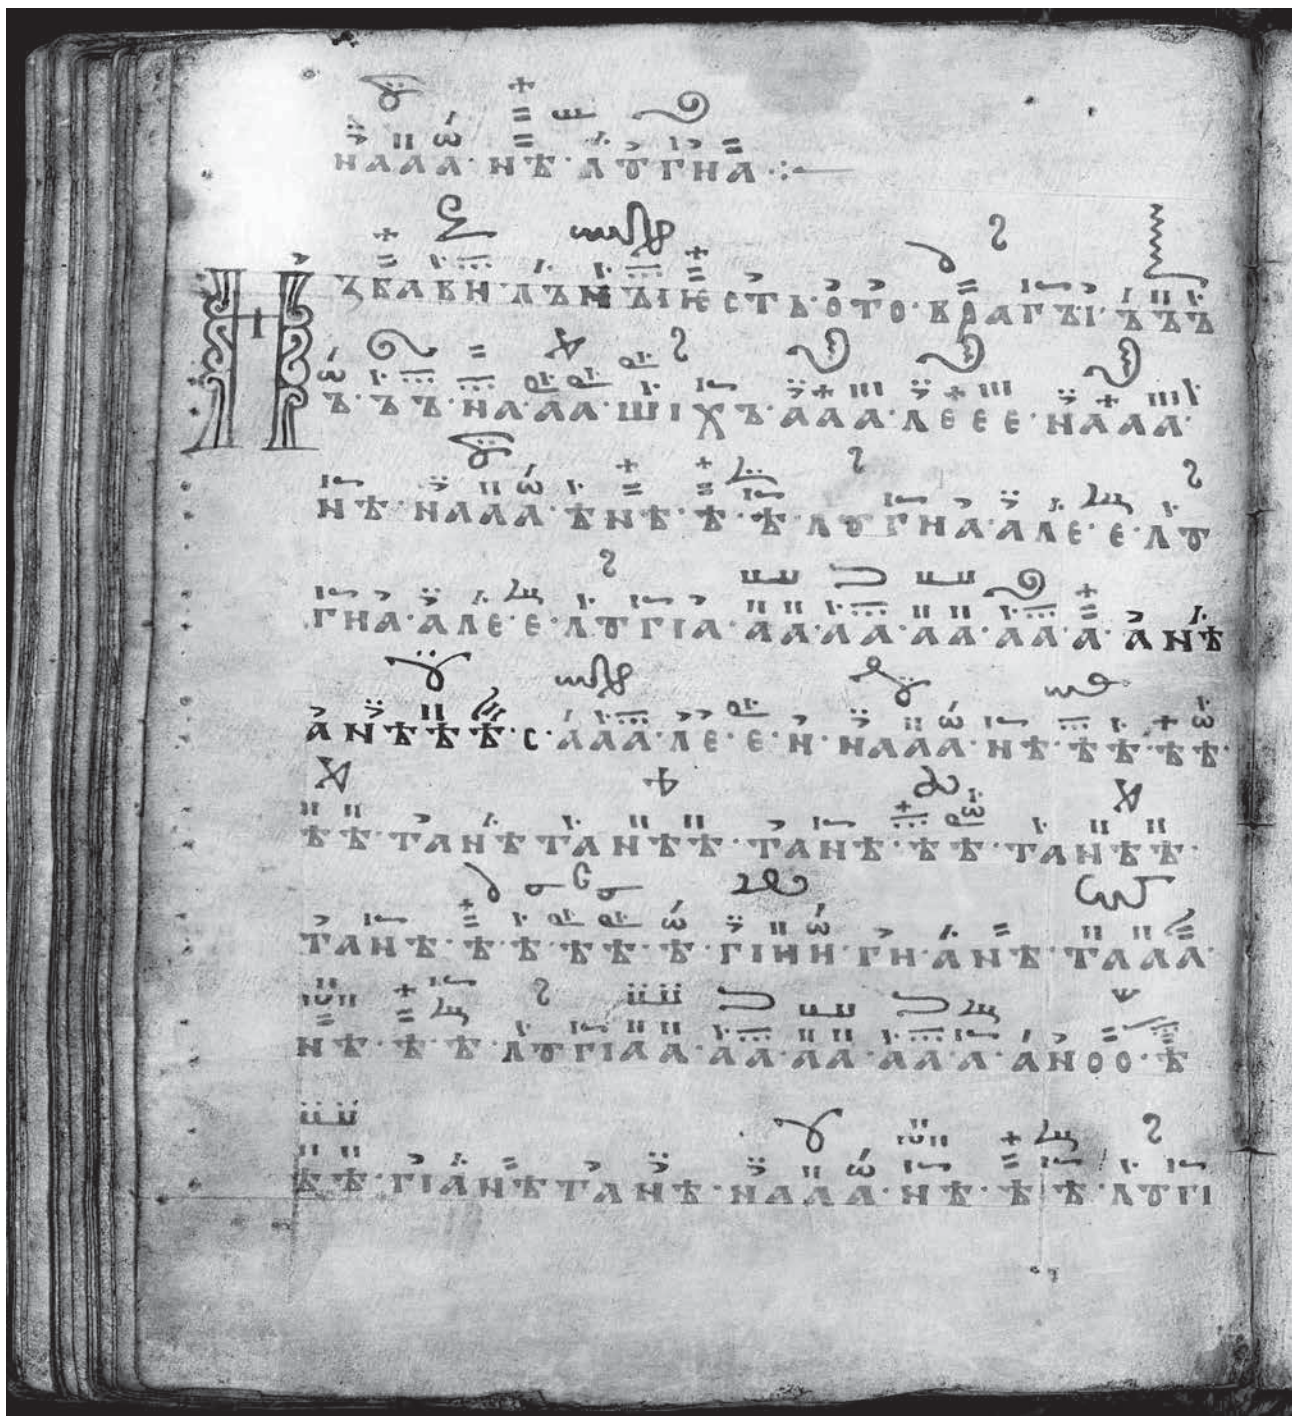 НАЛА · НѢ · ЛꙊГНА ·:·
ИЗБАВИ · ЛЪ НЪІ ЮСТЬ · ОТО · ВРАГЪІ · ЪЪЪ
Ъ · ЪЪ · НА · АА · ШІХЪ · ААА · ЛЕЕЕ · НААА ·
НѢ · НАЛА · ѢНѢ · Ѣ · Ѣ · ЛꙊГНА · АЛЕ · Е · ЛꙊ
ГНА · АЛЕ · Е · ЛꙊГІА · АА · АА · АА · АА · А · АНѢ
АНѢѢѢ · С · ААА · ЛЕ · Е · Н · НАЛА · НѢ · ѢѢ · ѢѢ ·
ѢѢ · ТАНѢТАНѢѢ · ТАНѢ · ѢѢ · ТАНѢѢ ·
ТАНѢ · ѢѢ · ѢѢ · Ѣ · ГІНН · ГН · АНѢ · ТАЛА ·
НѢ · ѢѢ · ЛꙊГІАА · АА · АА · ААА · АНОО · Ѣ
ѢѢ · ГІАНѢТАНѢ · НАЛА · НѢ · Ѣ · Ѣ · ЛꙊГІ